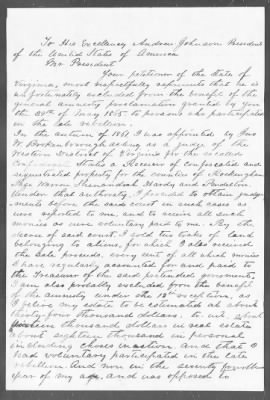 To His Excellency Andrew Johnson President
of the United States of America
Mr President
Your petitioner of the State of
Virginia, most respectfully represents that he is
unfortunately excluded from the benefit of the
general amnesty proclamation granted by you
the 29th of May 1865 to persons who participated
in the late rebellion.
In the autumn of 1861 I was appointed by Jno
W. Brokenborough acting as a judge of the
Western District of Virginia for the so called
Confederate States a Receiver of confiscated and
sequestrated property for the counties of Rockingham
Page Warren Shenandoah Hardy and Pendleton
Under that authority, I proceeded to obtain judg-
ments before the said court in such cases as
were reported to me, and to receive all such
monies as were voluntary paid to me. By the
decree of said court I sold two tracts of land
belonging to aliens, for which I also received
the sale proceeds, every cent of all which monies
I have vigorously accounted for and paid to
the Treasurer of the said pretended government.
I am also probably excluded from the benefit
of the amnesty under the 13th exceptions, as
I believe my estate to be estimated at about
thirty four thousand dollars. to wit,
sixteen thousand dollars in real estate
about eighteen thousand in personal
including choses in action, and that I
had voluntary participated in the late
rebellion. And now in the seventy
year of my age, and was opposed to